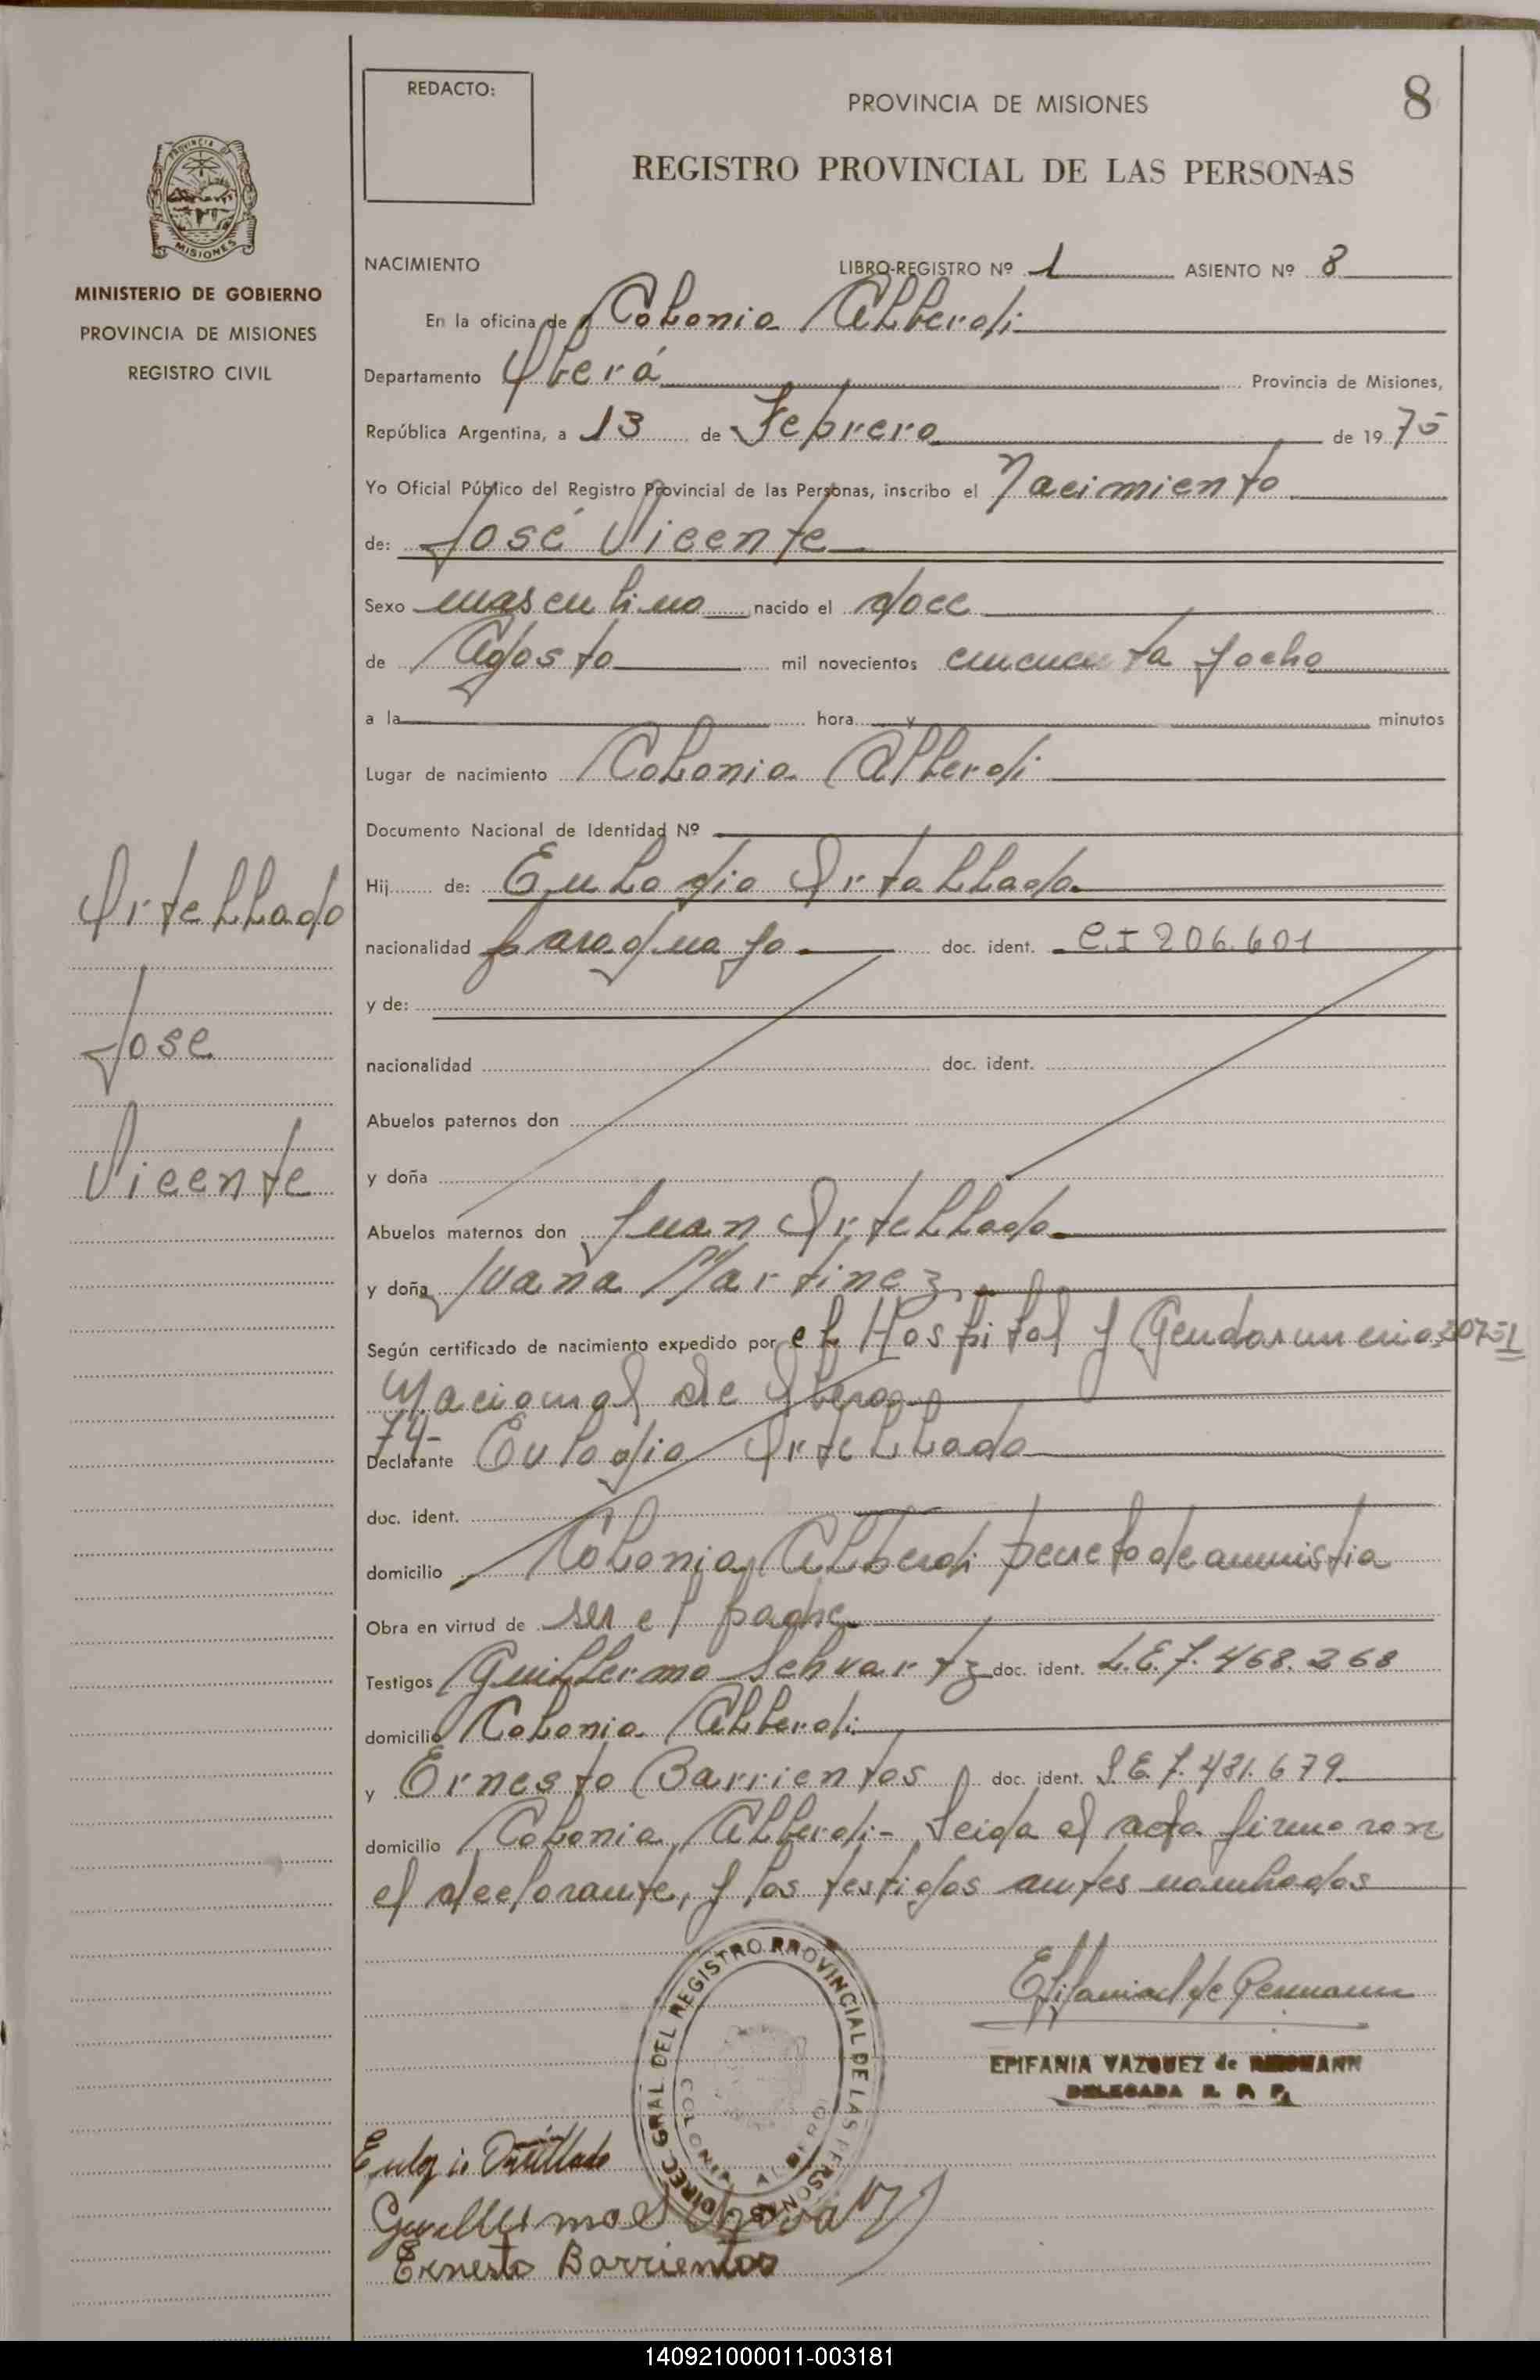 REDACTO:
PROVINCIA DE MISIONES
8
REGISTRO PROVINCIAL DE LAS PERSONAS
MISIONES
MINISTERIO DE GOBIERNO
PROVINCIA DE MISIONES
REGISTRO CIVIL
NACIMIENTO LIBRO-REGISTRO Nº 1 ASIENTO Nº 8
En la oficina de Colonia Alberdi
Departamento Oberá Provincia de Misiones,
República Argentina, a 13 de Febrero de 1975
Yo Oficial Público del Registro Provincial de las Personas, inscribo el Nacimiento
de: José Vicente
Sexo masculino nacido el doce
de Agosto mil novecientos cincuenta y ocho
a la hora y minutos
Lugar de nacimiento Colonia Alberdi
Documento Nacional de Identidad Nº
Hij de: Eulogio Ortellado
nacionalidad paraguayo doc. ident. C.I 206.601
y de:
nacionalidad doc. ident.
Abuelos paternos don
y doña
Abuelos maternos don Juan Ortellado
y doña Juana Martinez
Según certificado de nacimiento expedido por el Hospital y Gendarmeria
Nacional de Obera
74-
Declarante Eulogio Ortellado
doc. ident.
domicilio Colonia Alberdi Decreto de amnistia
Obra en virtud de ser el padre
Testigos Guillermo Schvartz doc. ident. L.E.7.468.268
domicilio Colonia Alberdi
y Ernesto Barrientos doc. ident. L.E.7.481.679
domicilio Colonia Alberdi- Leida el acta firmaron
el declarante, y los testigos antes nombrados
Ortellado
Jose
Vicente
DIREC. GRAL. DEL REGISTRO PROVINCIAL DE LAS PERSONAS
EPIFANIA VAZQUEZ de
DELEGADA R. P. P.
Eulogio Ortellado
Guillermo Schvartz
Ernesto Barrientos
140921000011-003181